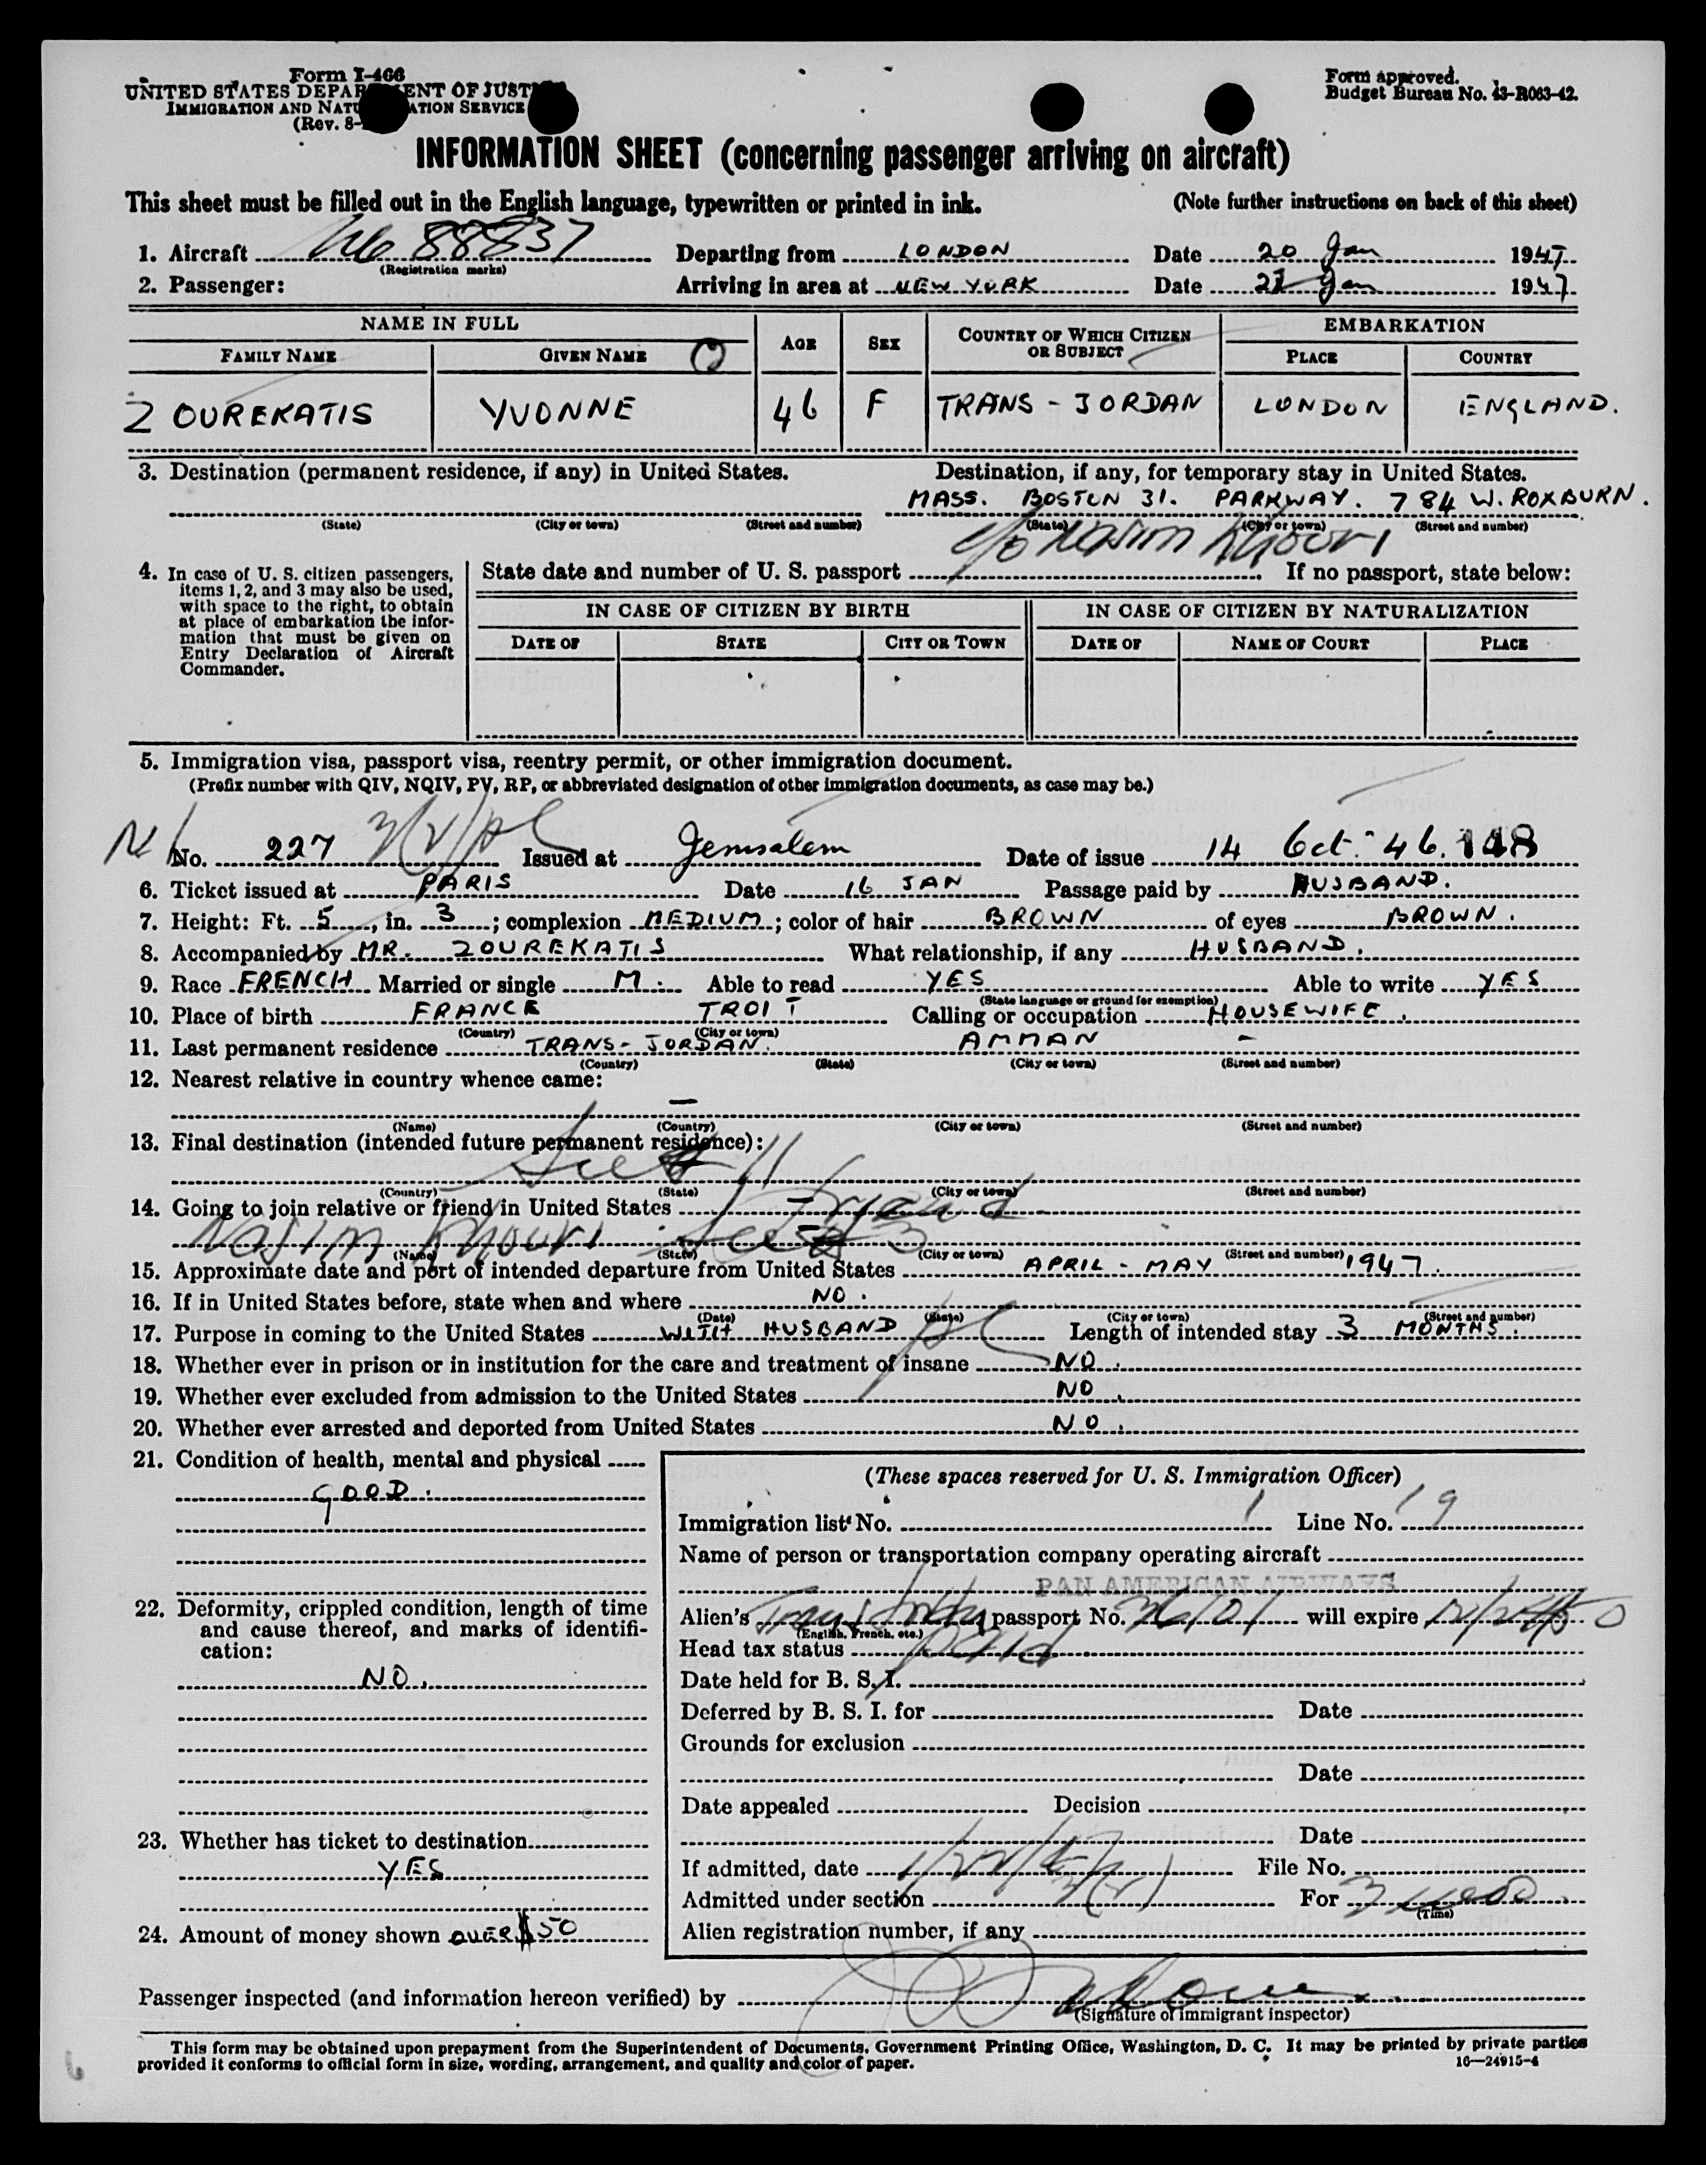 Form I-466
UNITED STATES DEPARTMENT OF JUSTICE
IMMIGRATION AND NATURALIZATION SERVICE
(Rev. 8-
Form approved.
Budget Bureau No. 43-R063-42.
INFORMATION SHEET (concerning passenger arriving on aircraft)
This sheet must be filled out in the English language, typewritten or printed in ink. (Note further instructions on back of this sheet)
1. Aircraft 88837 Departing from LONDON Date 20 Jan 1947
(Registration marks)
2. Passenger: Arriving in area at NEW YORK Date Jan 1947
NAME IN FULL AGE SEX COUNTRY OF WHICH CITIZEN OR SUBJECT EMBARKATION
FAMILY NAME GIVEN NAME PLACE COUNTRY
ZOUREKATIS YVONNE 46 F TRANS-JORDAN LONDON ENGLAND.
3. Destination (permanent residence, if any) in United States. Destination, if any, for temporary stay in United States.
MASS. BOSTON 31. PARKWAY. 784 W. ROXBURN.
(State) (City or town) (Street and number) (State) (City or town) (Street and number)
c/o Nasim Khouri
4. In case of U. S. citizen passengers, items 1, 2, and 3 may also be used, with space to the right, to obtain at place of embarkation the information that must be given on Entry Declaration of Aircraft Commander.
State date and number of U. S. passport If no passport, state below:
IN CASE OF CITIZEN BY BIRTH IN CASE OF CITIZEN BY NATURALIZATION
DATE OF STATE CITY OR TOWN DATE OF NAME OF COURT PLACE
5. Immigration visa, passport visa, reentry permit, or other immigration document.
(Prefix number with QIV, NQIV, PV, RP, or abbreviated designation of other immigration documents, as case may be.)
No. 227 3(2) Issued at Jerusalem Date of issue 14 Oct. 46. 148
6. Ticket issued at PARIS Date 16 JAN Passage paid by HUSBAND.
7. Height: Ft. 5, in. 3; complexion MEDIUM; color of hair BROWN of eyes BROWN.
8. Accompanied by MR. ZOUREKATIS What relationship, if any HUSBAND.
9. Race FRENCH Married or single M. Able to read YES Able to write YES
(State language or ground for exemption)
10. Place of birth FRANCE TROIT Calling or occupation HOUSEWIFE.
(Country) (City or town)
11. Last permanent residence TRANS-JORDAN. AMMAN -
(Country) (State) (City or town) (Street and number)
12. Nearest relative in country whence came:
-
(Name) (Country) (City or town) (Street and number)
13. Final destination (intended future permanent residence):
See 11
(Country) (State) (City or town) (Street and number)
14. Going to join relative or friend in United States friend
Nasim Khouri See 3
(Name) (State) (City or town) (Street and number)
15. Approximate date and port of intended departure from United States APRIL - MAY 1947.
16. If in United States before, state when and where NO.
(Date) (State) (City or town) (Street and number)
17. Purpose in coming to the United States WITH HUSBAND Length of intended stay 3 MONTHS.
18. Whether ever in prison or in institution for the care and treatment of insane NO.
19. Whether ever excluded from admission to the United States NO.
20. Whether ever arrested and deported from United States NO.
21. Condition of health, mental and physical
GOOD.
22. Deformity, crippled condition, length of time and cause thereof, and marks of identification:
NO.
23. Whether has ticket to destination
YES
24. Amount of money shown OVER $50
(These spaces reserved for U. S. Immigration Officer)
Immigration list No. 1 Line No. 19
Name of person or transportation company operating aircraft
PAN AMERICAN AIRWAYS
Alien's passport No. will expire
(English, French, etc.)
Head tax status paid
Date held for B. S. I.
Deferred by B. S. I. for Date
Grounds for exclusion
Date
Date appealed Decision
Date
If admitted, date 1/22/47 File No.
Admitted under section 3(2) For 3
(Time)
Alien registration number, if any
Passenger inspected (and information hereon verified) by
(Signature of immigrant inspector)
This form may be obtained upon prepayment from the Superintendent of Documents, Government Printing Office, Washington, D. C. It may be printed by private parties
provided it conforms to official form in size, wording, arrangement, and quality and color of paper. 16—24915-4